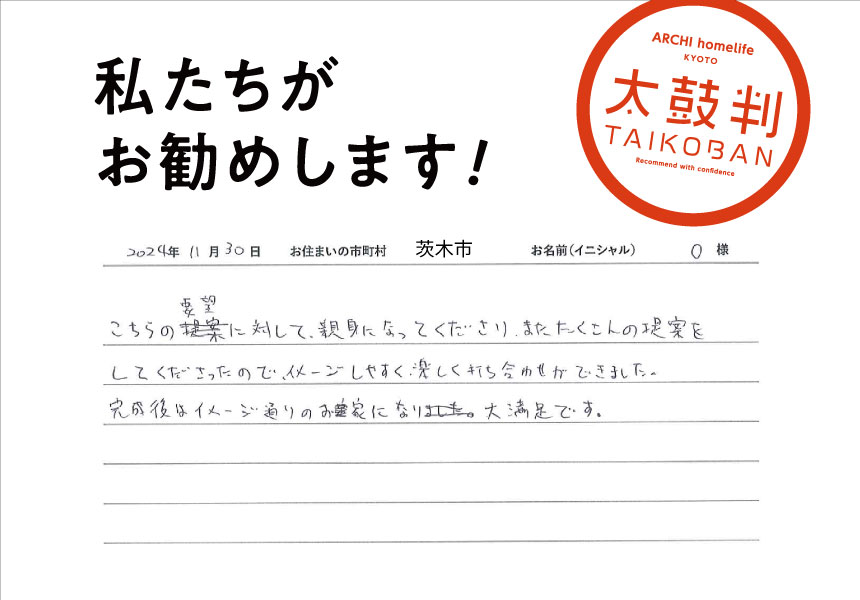 私たちが
お勧めします!
ARCHI homelife
KYOTO
太鼓判
TAIKOBAN
Recommend with confidence
2024年 11月30日 お住まいの市町村 茨木市 お名前(イニシャル) O 様
要望
こちらの提案に対して、親身になってくださり、またたくさんの提案を
してくださったので、イメージしやすく、楽しく打ち合わせができました。
完成後はイメージ通りのお家になりました。大満足です。